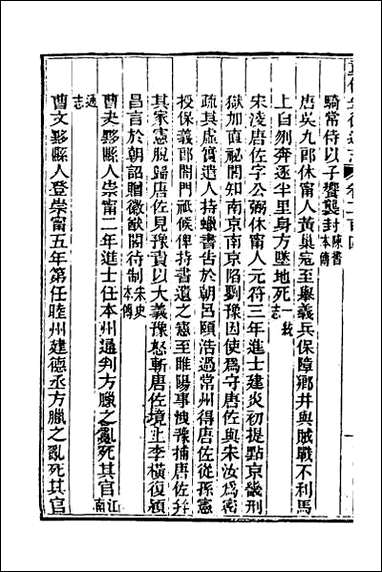 騎常侍以子饗襲封陳書本傳
唐吳九郎休甯人黃巢寇至舉義兵保障鄉井與賊戰不利馬
上自刎奔逐半里身方墜地死一統志
宋淩唐佐字公弼休甯人元符三年進士建炎初提點京畿刑
獄加直祕閣知南京南京陷劉豫因使爲守唐佐與朱汝爲密
疏其虛實遣人持蠟書告於朝呂頤浩過常州得唐佐從孫憲
授保義郎閤門祗候俾持書遺之憲至睢陽事洩豫捕唐佐并
其家憲脫歸唐佐見豫責以大義豫怒斬唐佐境上李橫復潁
昌言於朝詔贈徽猷閣待制宋史本傳
曹夬黟縣人崇甯二年進士任本州通判方臘之亂死其官江南
通志
曹文黟縣人登崇甯五年第任睦州建德丞方臘之亂死其官